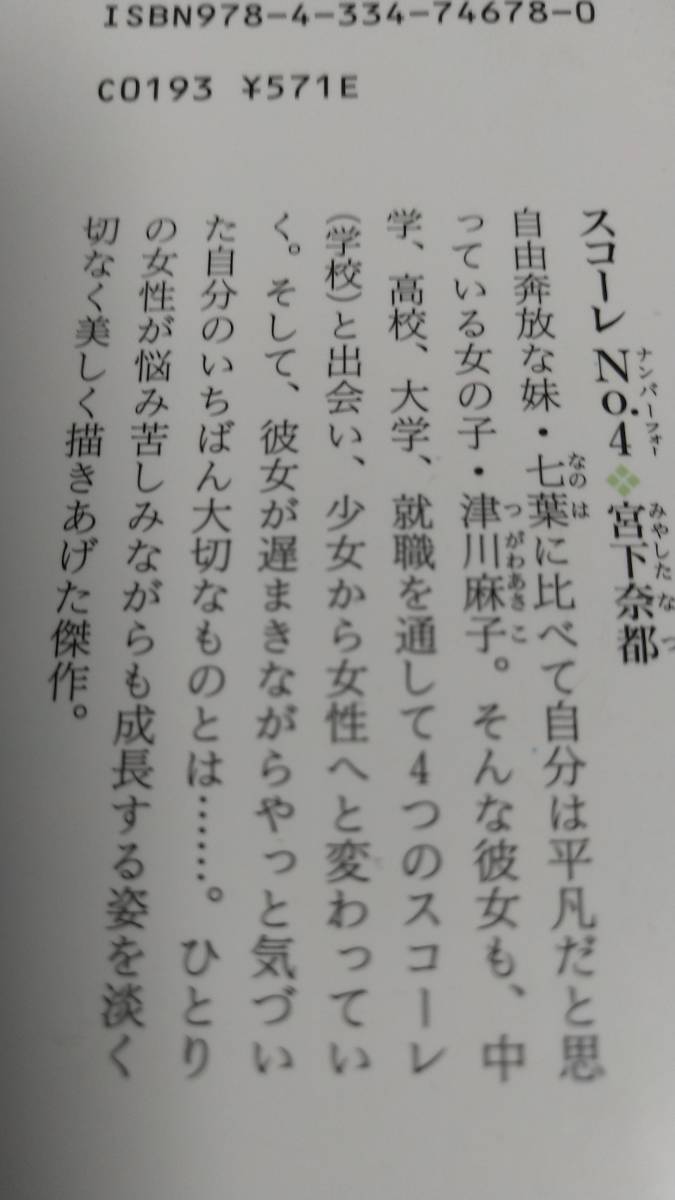 ISBN978-4-334-74678-0
C0193 ¥571E
スコーレNo.4 宮下奈都
ナンバーフォー
みやしたなつ
自由奔放な妹・七葉に比べて自分は平凡だと思
なのは
っている女の子・津川麻子。そんな彼女も、中
つがわあさこ
学、高校、大学、就職を通して4つのスコーレ
(学校)と出会い、少女から女性へと変わってい
く。そして、彼女が遅まきながらやっと気づい
た自分のいちばん大切なものとは……。ひとり
の女性が悩み苦しみながらも成長する姿を淡く
切なく美しく描きあげた傑作。